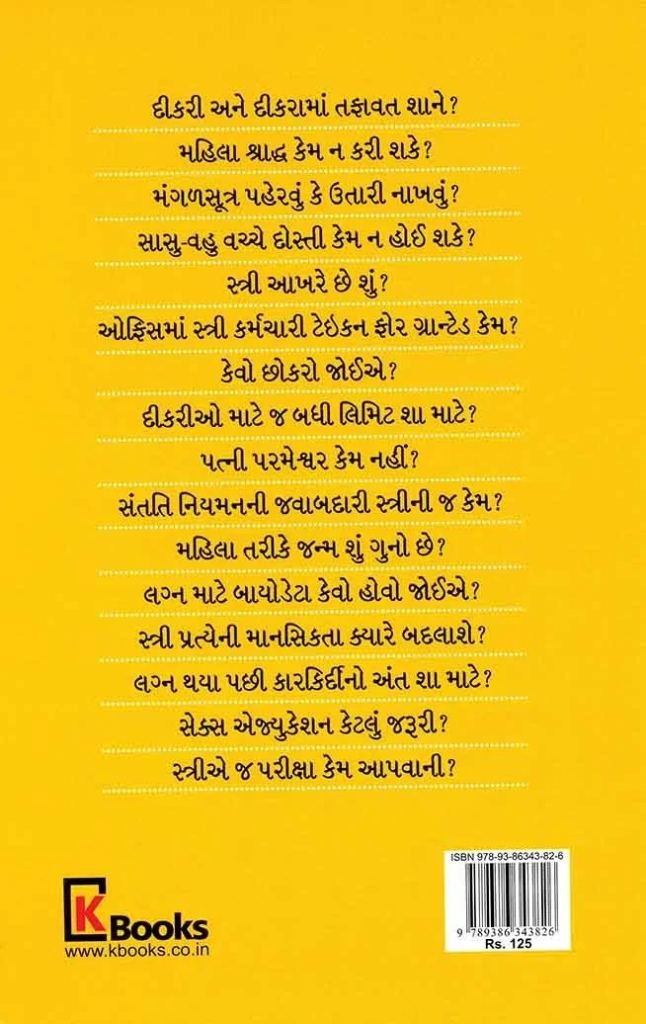 દીકરી અને દીકરામાં તફાવત શાને?
મહિલા શ્રાદ્ધ કેમ ન કરી શકે?
મંગળસૂત્ર પહેરવું કે ઉતારી નાખવું?
સાસુ-વહુ વચ્ચે દોસ્તી કેમ ન હોઈ શકે?
સ્ત્રી આખરે છે શું?
ઓફિસમાં સ્ત્રી કર્મચારી ટેઇકન ફોર ગ્રાન્ટેડ કેમ?
કેવો છોકરો જોઈએ?
દીકરીઓ માટે જ બધી લિમિટ શા માટે?
પત્ની પરમેશ્વર કેમ નહીં?
સંતતિ નિયમનની જવાબદારી સ્ત્રીની જ કેમ?
મહિલા તરીકે જન્મ શું ગુનો છે?
લગ્ન માટે બાયોડેટા કેવો હોવો જોઈએ?
સ્ત્રી પ્રત્યેની માનસિકતા ક્યારે બદલાશે?
લગ્ન થયા પછી કારકિર્દીનો અંત શા માટે?
સેક્સ એજ્યુકેશન કેટલું જરૂરી?
સ્ત્રીએ જ પરીક્ષા કેમ આપવાની?
ISBN 978-93-86343-82-6
9 789386 343826
Rs. 125
K Books
www.kbooks.co.in